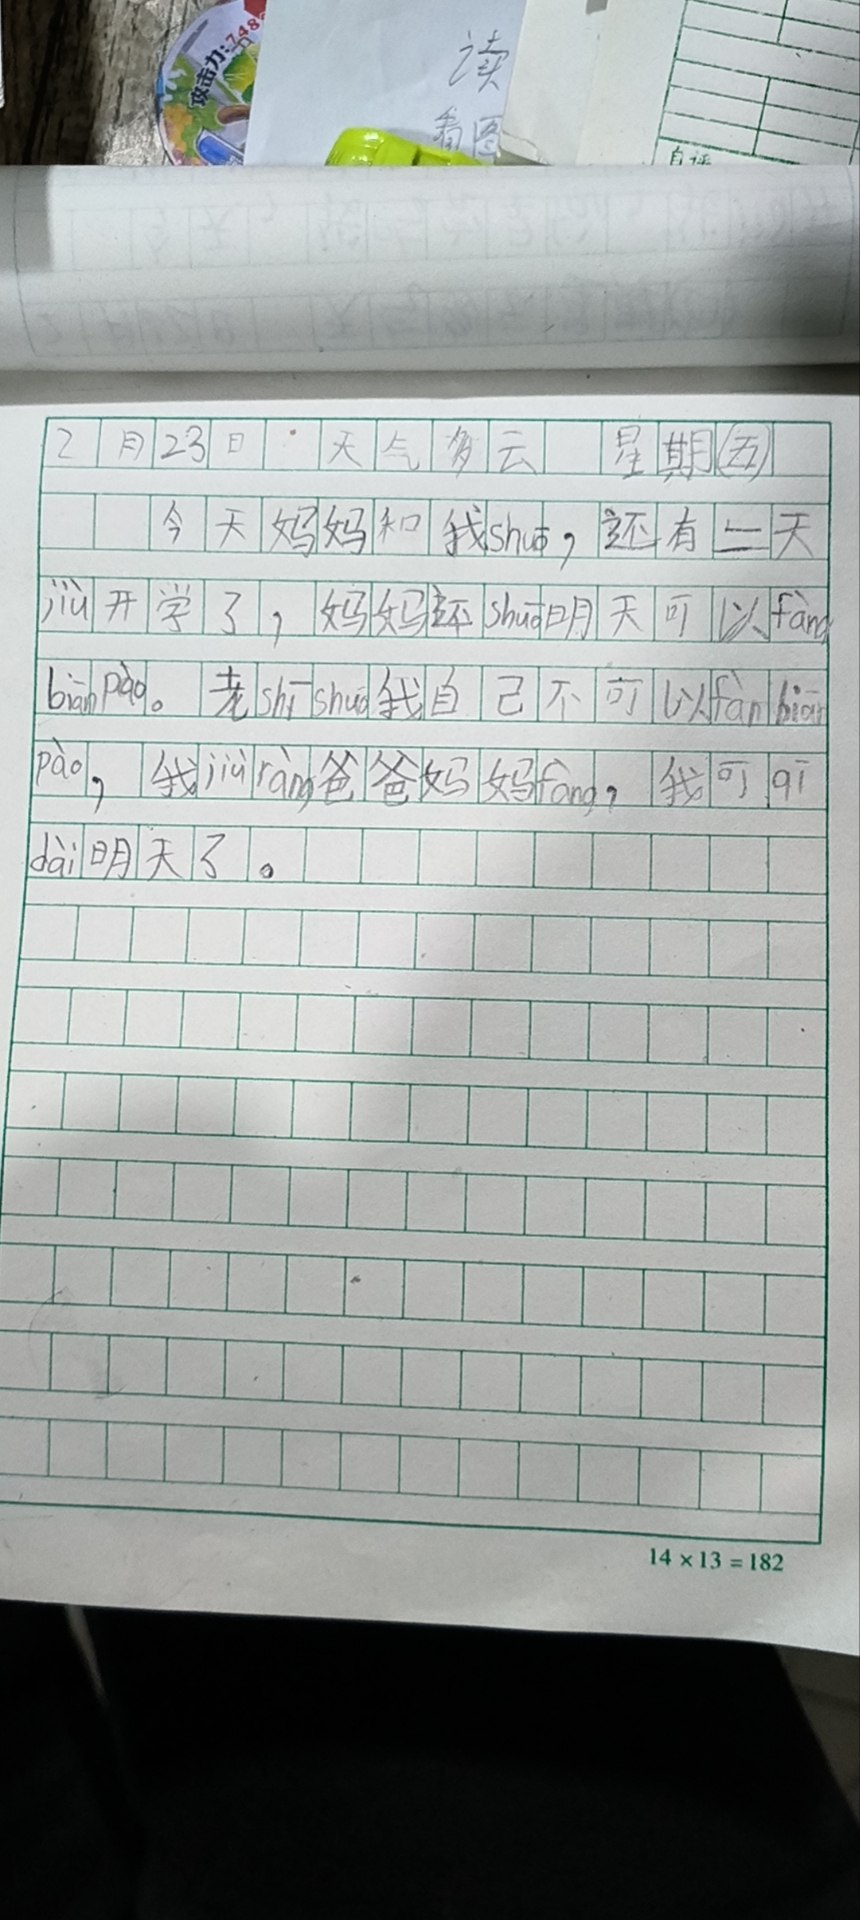 攻击力:748
读
看图
自评
2月23日 天气多云 星期五
今天妈妈和我shuō，还有二天
jiù开学了，妈妈还shuō明天可以fàng
biānpào。老shīshuō我自己不可以fànbiān
pào，我jiùràng爸爸妈妈fàng，我可qī
dài明天了。
14×13=182